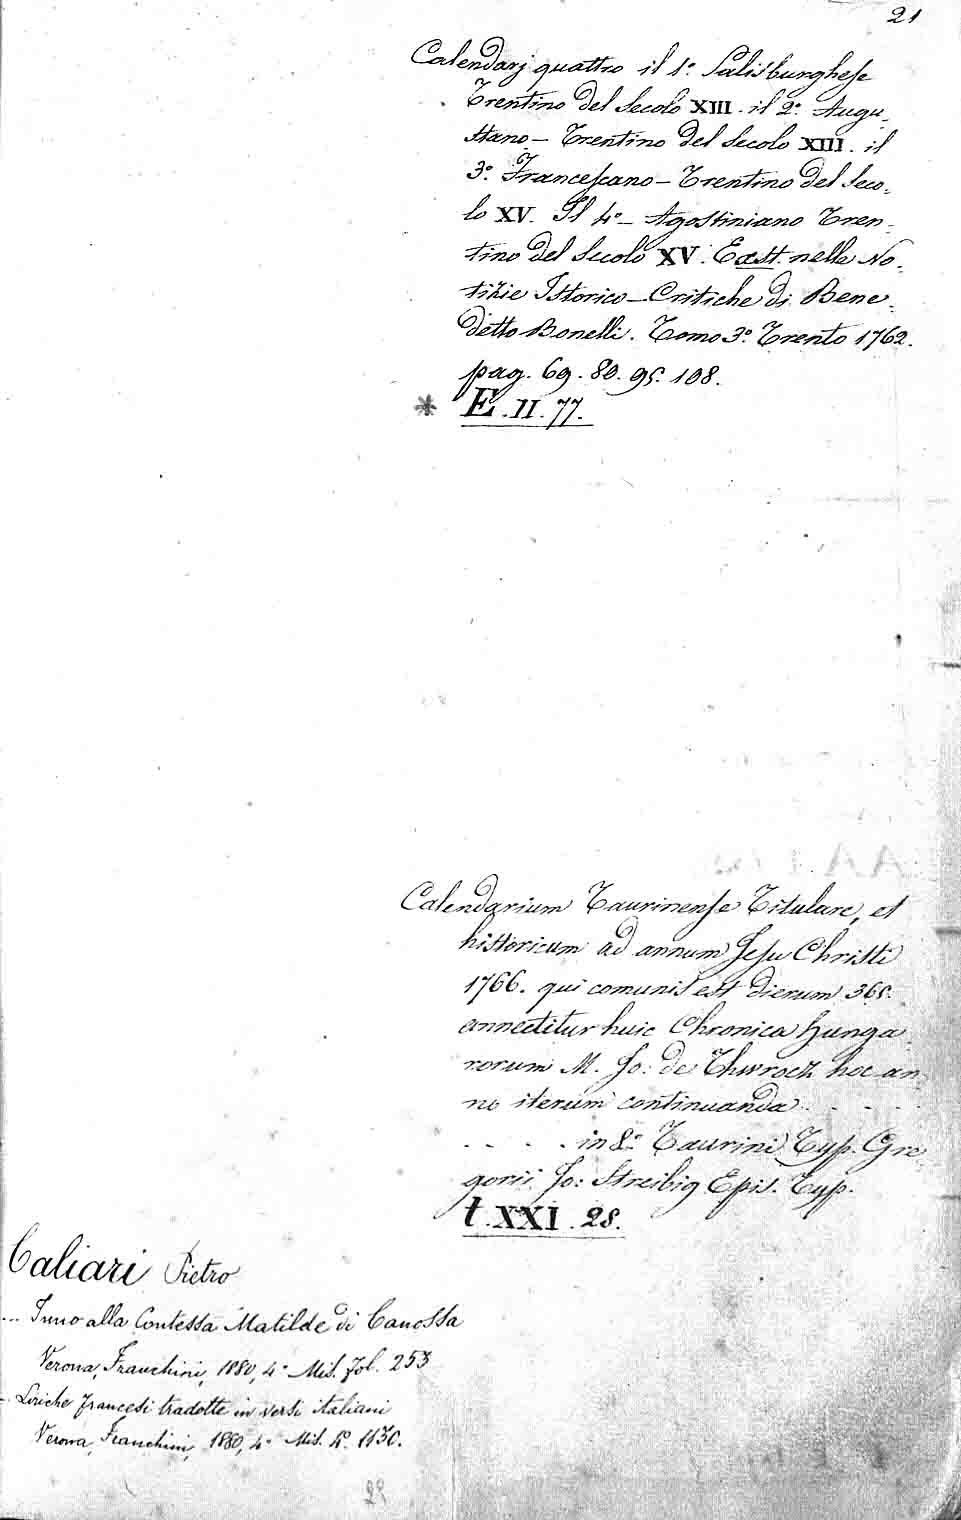 21
Calendarj quattro il 1.° Salisburghese
Trentino del Secolo XIII. il 2.° Augu-
stano - Trentino del Secolo XIII. il
3.° Francescano - Trentino del Seco-
lo XV. Il 4.° - Agostiniano Tren-
tino del Secolo XV. Exstt. nelle No-
tizie Istorico - Critiche di Bene-
detto Bonelli. Tomo 3.° Trento 1762.
pag. 69. 80. 95. 108.
* E. II. 77.
Calendarium Taurinense Titulare, et
historicum ad annum Jesu Christi
1766. qui comunis est dierum 365.
annectitur huic Chronica Hunga-
rorum M. Jo: de Thwrocz hoc an-
no iterum continuanda . . . .
. . . . in 8.° Taurini Typ. Gre
gorii Jo: Streibig Epis. Typ.
t. XXI. 28.
Caliari Pietro
... Inno alla Contessa Matilde di Canossa
Verona, Franchini, 1880, 4° Mis. fol. 253
.. Liriche francesi tradotte in versi italiani
Verona, Franchini, 1880, 4° Mis. 4°. 1130.